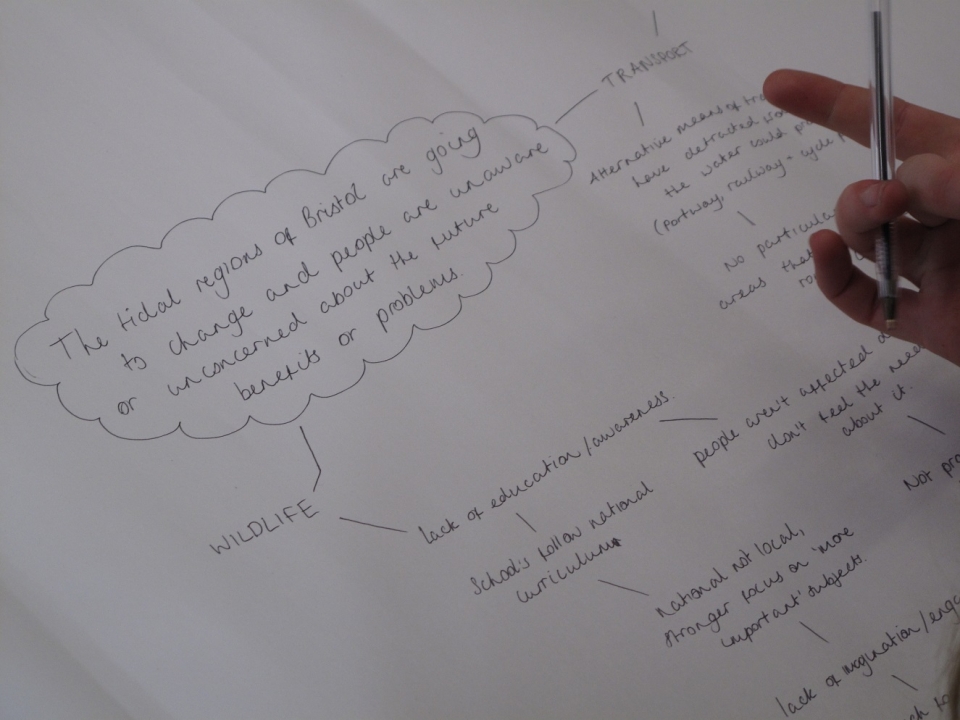 The tidal regions of Bristol are going
to change and people are unaware
or unconcerned about the future
benefits or problems.
TRANSPORT
Alternative means of
have detracted
the water could
(Portway, railway + cycle
No
areas
WILDLIFE
lack of education/awareness.
people aren't affected
don't feel the need
about it.
Not
Schools follow national
curriculum
National not local,
stronger focus on 'more
important' subjects.
lack of imagination/